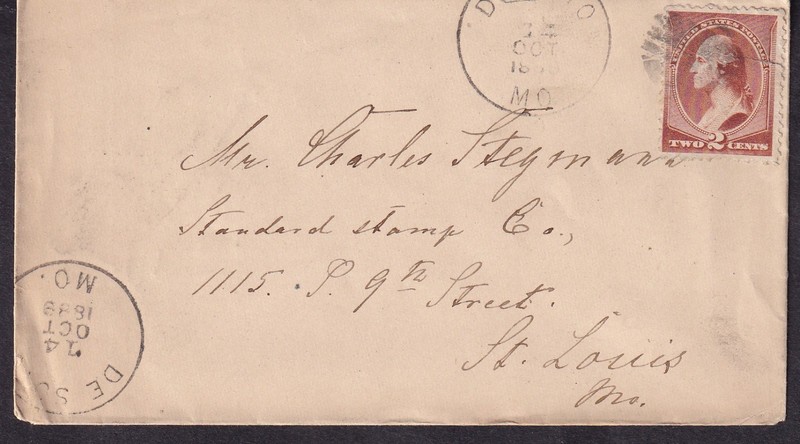 OCT
MO
UNITED STATES POSTAGE
TWO 2 CENTS
Mr. Charles Stegmann
Standard stamp Co.,
1115. S. 9th Street.
St. Louis
Mo.
DE
14
OCT
1889
MO.